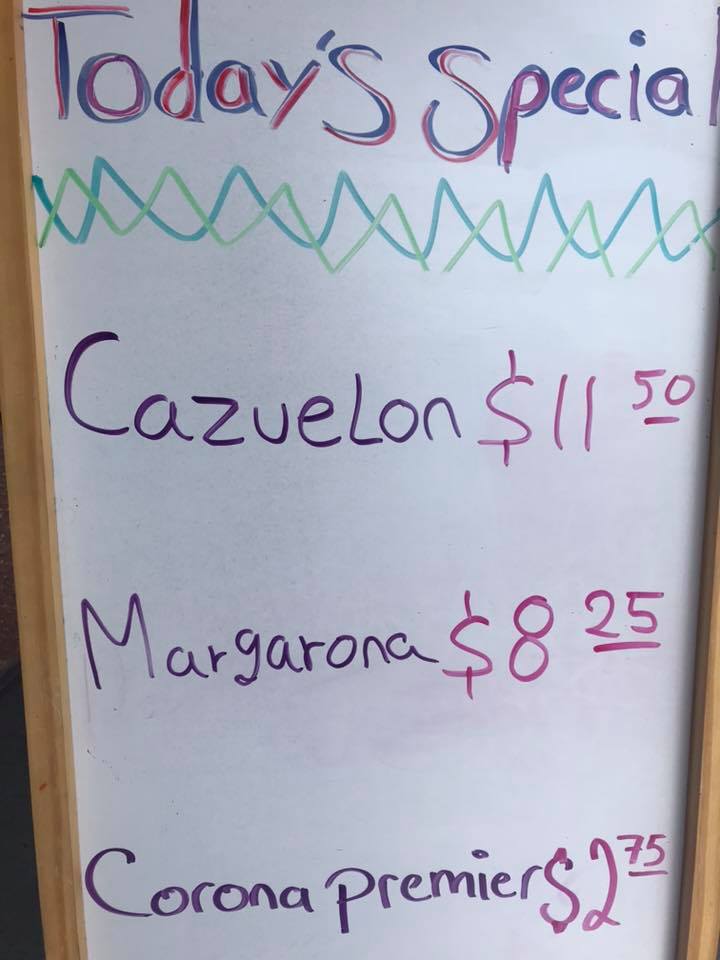 Today's Special
Cazuelon $11 50
Margarona $8 25
Corona premier $2 75